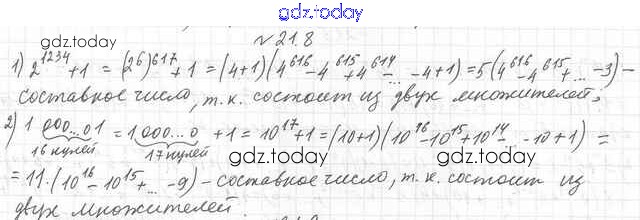 gdz.today
№21.8
gdz.today
1) 2^1234 + 1 = (2^6)^617 + 1 = (4+1)(4^616 - 4^615 + 4^614 - ... - 4+1) = 5(4^616 - 4^615 + ... - 3) -
составное число, т.к. состоит из двух множителей;
2) 1 000...01 = 1 000...0 + 1 = 10^17 + 1 = (10+1)(10^16 - 10^15 + 10^14 - ... - 10 + 1) =
16 нулей 17 нулей
gdz.today gdz.today
= 11·(10^16 - 10^15 + ... - 9) - составное число, т.к. состоит из
двух множителей.